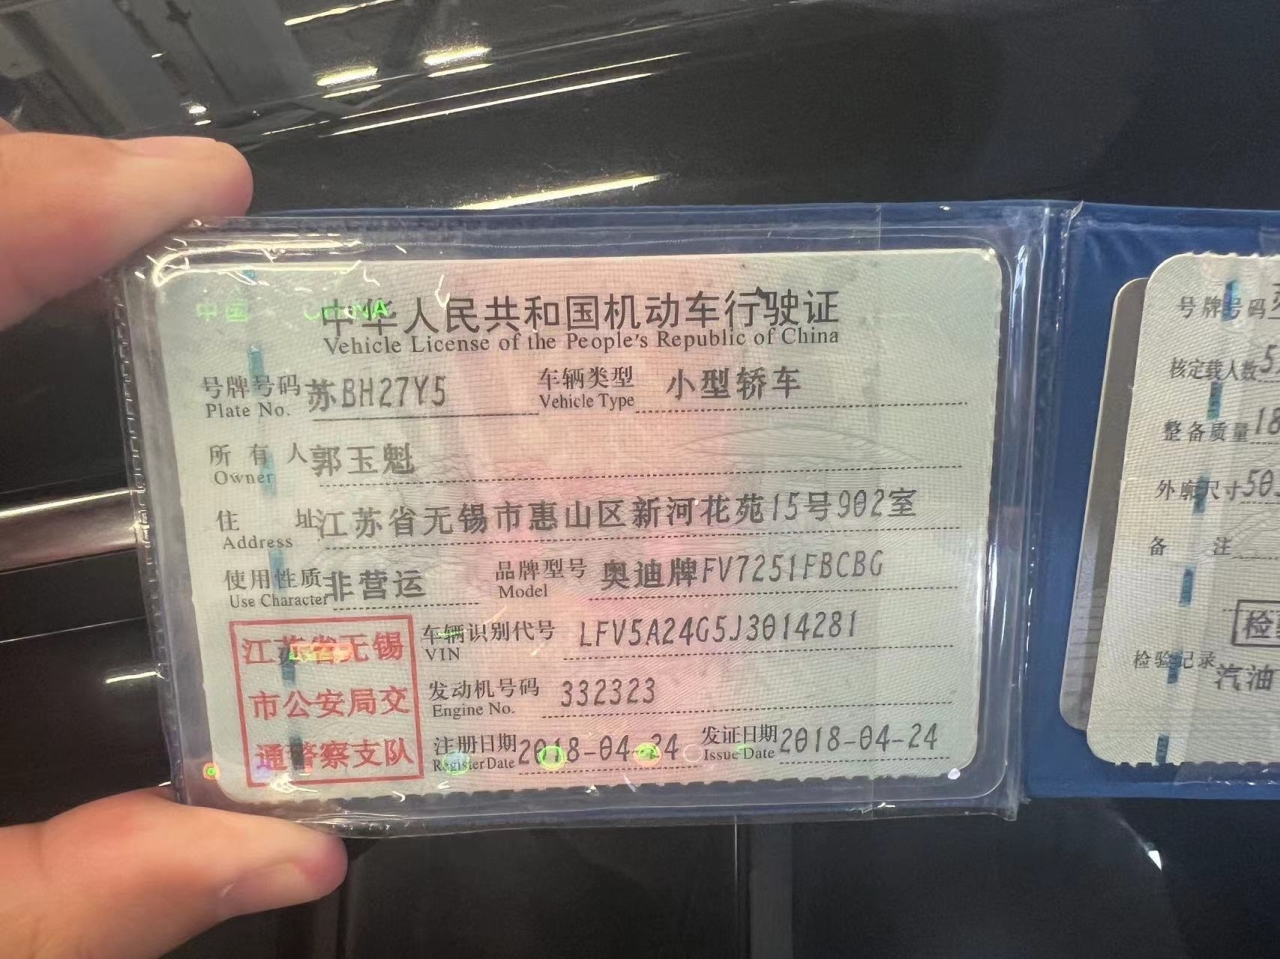 中国 CHINA
中华人民共和国机动车行驶证
Vehicle License of the People's Republic of China
号牌号码 苏BH27Y5 车辆类型 小型轿车
Plate No. Vehicle Type
所有人 郭玉魁
Owner
住址 江苏省无锡市惠山区新河花苑15号902室
Address
使用性质 非营运 品牌型号 奥迪牌FV7251FBCBG
Use Character Model
江苏省无锡
市公安局交
通警察支队
车辆识别代号 LFV5A24G5J3014281
VIN
发动机号码 332323
Engine No.
注册日期 2018-04-24 发证日期 2018-04-24
Register Date Issue Date
号牌号码
核定载人数 5
整备质量 18
外廓尺寸 50
备注
检验记录
汽油